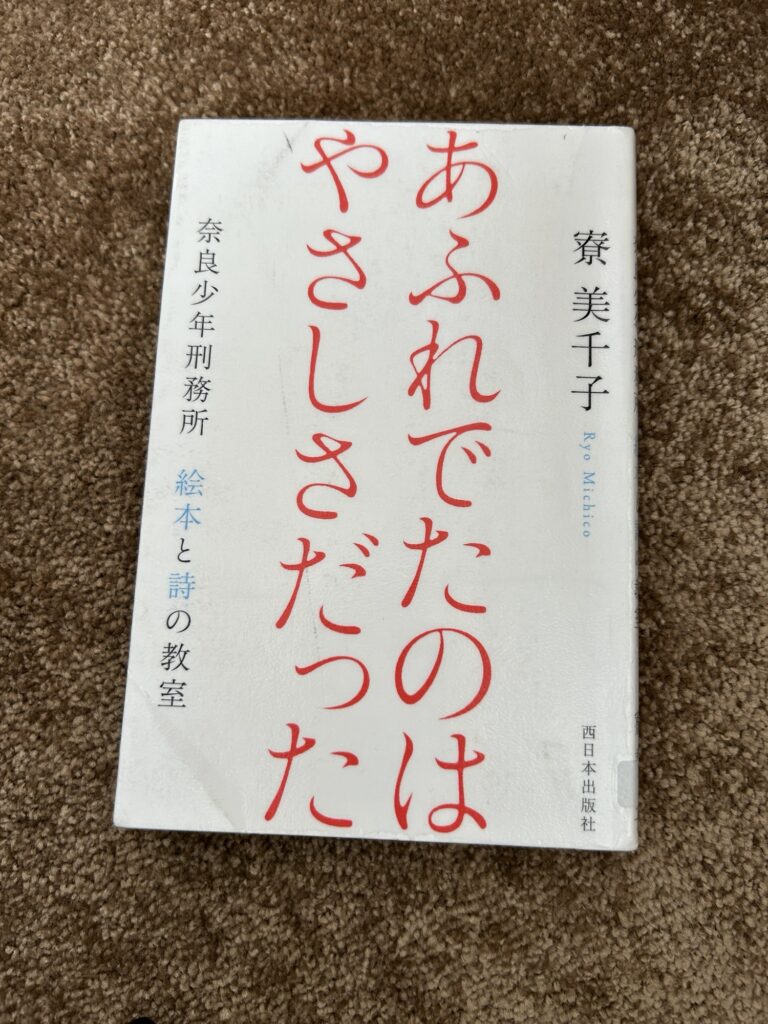 寮 美千子
Ryo Michico
あふれでたのは
やさしさだった
奈良少年刑務所 絵本と詩の教室
西日本出版社